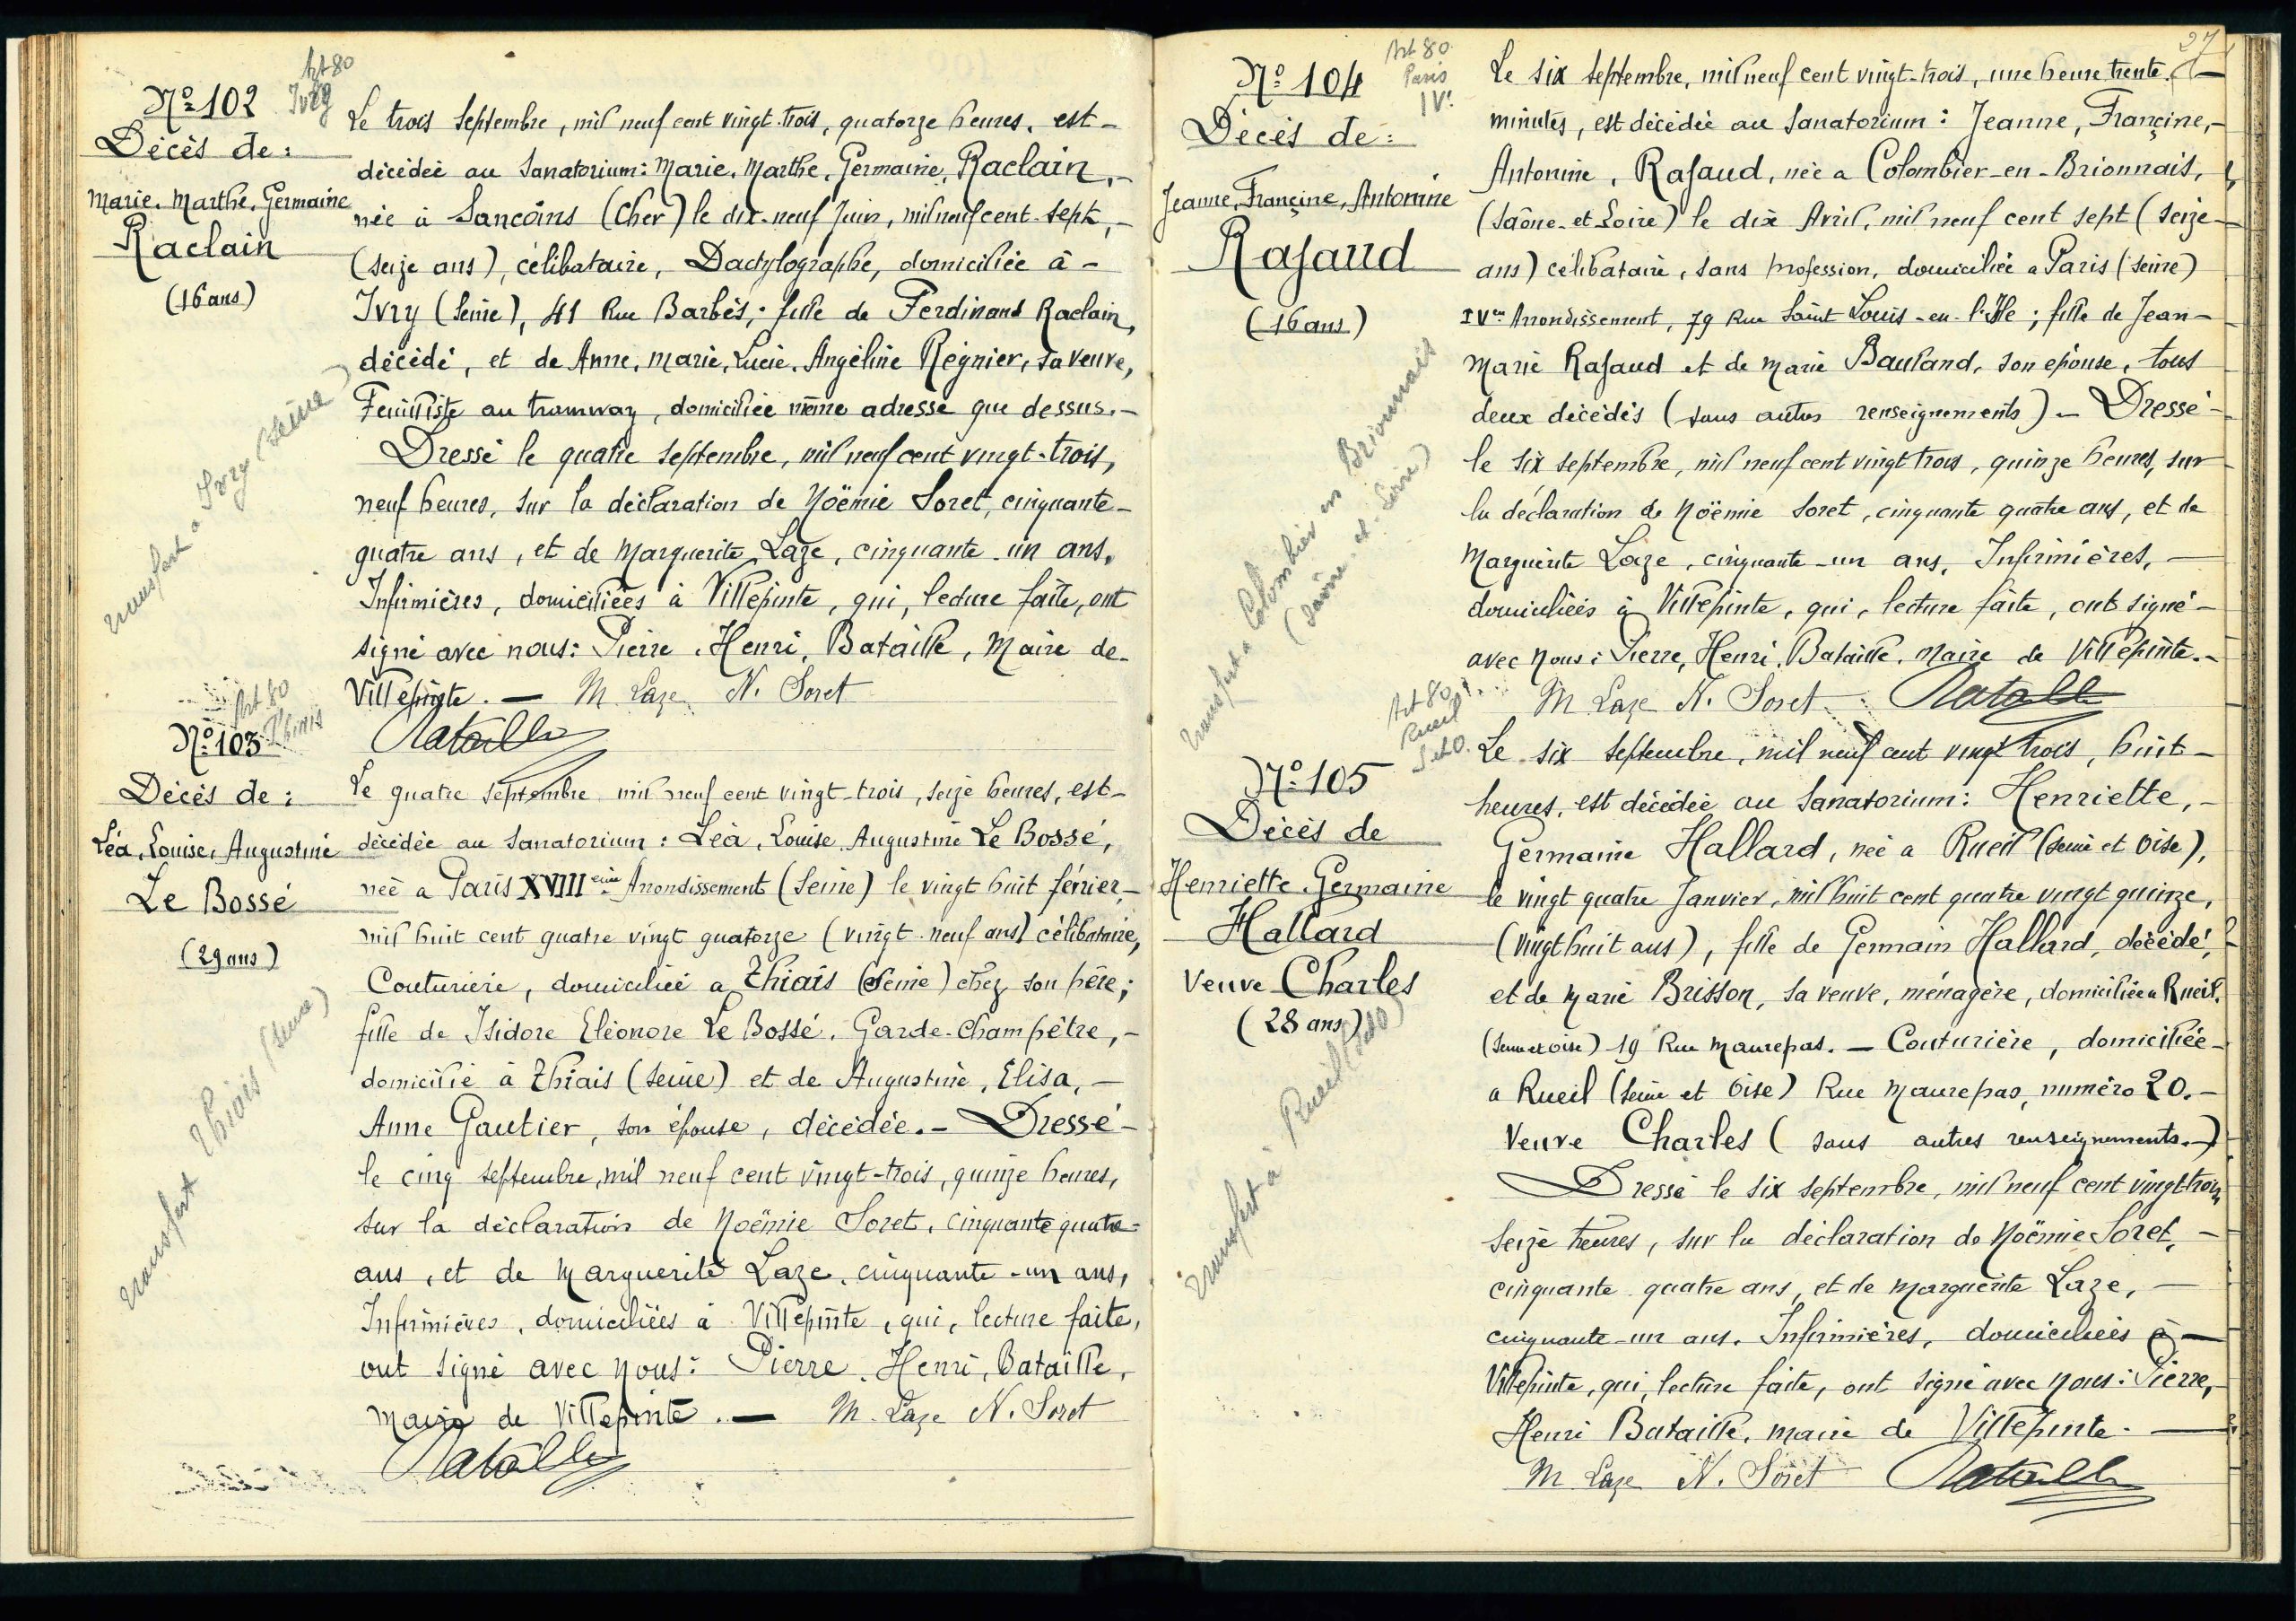 Art 80
Ivry
Nº 102
Décès de:
Marie, Marthe, Germaine
Raclain
(16 ans)
transfert a Ivry (Seine)
Le trois Septembre, mil neuf cent vingt-trois, quatorze heures, est-
décédée au Sanatorium: Marie, Marthe, Germaine, Raclain,-
née à Sancoins (Cher) le dix-neuf Juin, mil neuf cent-sept,-
(seize ans), célibataire, Dactylographe, domiciliée à-
Ivry (Seine), 41 Rue Barbès,; fille de Ferdinand Raclain,
décédé, et de Anne, Marie, Lucie, Angéline Régnier, sa veuve,
Feuilliste au tramway, domiciliée même adresse que dessus.-
Dressé le quatre septembre, mil neuf cent vingt-trois,
neuf heures, sur la déclaration de Noëmie Soret, cinquante-
quatre ans, et de Marguerite, Laze, cinquante-un ans,
Infirmières, domiciliées à Villepinte, qui, lecture faite, ont
signé avec nous: Pierre, Henri, Bataille, Maire de-
Villepinte.— M Laze N. Soret
Bataille
Art 80
Thiais
Nº 103
Décès de:
Léa, Louise, Augustine
Le Bossé
(29 ans)
transfert Thiais (Seine)
Le quatre septembre mil neuf cent vingt-trois, seize heures, est-
décédée au Sanatorium: Léa, Louise, Augustine Le Bossé,
née a Paris XVIII eme Arrondissement (Seine) le vingt huit février,-
mil huit cent quatre vingt quatorze (vingt-neuf ans) célibataire,
Couturière, domiciliée a Thiais (Seine) chez son père;
fille de Isidore Eléonore Le Bossé, Garde-Champêtre,-
domicilié à Thiais (Seine) et de Augustine, Elisa,—
Anne Gautier, son épouse, décédée.- Dressé-
le cinq septembre, mil neuf cent vingt-trois, quinze heures,
sur la déclaration de Noëmie Soret, cinquante quatre-
ans, et de Marguerite Laze, cinquante-un ans,
Infirmières, domiciliées à Villepinte, qui, lecture faite,
ont signé avec nous: Pierre, Henri, Bataille,
Maire de Villepinte.— M. Laze N. Soret
Bataille
27
Art 80
Paris
IVe
Nº 104
Décès de:
Jeanne, Françine, Antonine
Rajaud
(16 ans)
transfert a Colombier en Brionnais
(Saône-et-Loire)
Le six septembre, mil neuf cent vingt-trois, une heure trente.—
minutes, est décédée au Sanatorium: Jeanne, Françine,-
Antonine, Rajaud, née a Colombier-en-Brionnais,
(Saône-et-Loire) le dix Avril, mil neuf cent sept (seize-
ans) célibataire, sans profession, domiciliée a Paris (Seine)
IVem Arrondissement, 79 Rue Saint Louis-en-l'Ile; fille de Jean-
Marie Rajaud et de Marie Bauland, son épouse, tous
deux décédés (sans autres renseignements)- Dressé-
le six septembre, mil neuf cent vingt trois, quinze heures, sur
la déclaration de Noëmie Soret, cinquante quatre ans, et de
Marguerite Laze, cinquante-un ans, Infirmières,—
domiciliées à Villepinte, qui, lecture faite, ont signé-
avec nous: Pierre, Henri, Bataille, Maire de Villepinte.-
M Laze N. Soret Bataille
Art 80
Rueil
S et O.
Nº 105
Décès de
Henriette Germaine
Hallard
Veuve Charles
(28 ans)
transfert a Rueil (S et O)
Le six Septembre, mil neuf cent vingt trois, huit-
heures, est décédée au Sanatorium: Henriette,-
Germaine Hallard, née a Rueil (Seine et Oise),
le vingt quatre Janvier, mil huit cent quatre vingt quinze,
(vingt huit ans), fille de Germain Hallard, décédé,
et de Marie Brisson, sa veuve, ménagère, domiciliée a Rueil,
(Seine et Oise) 19 Rue Maurepas.— Couturière, domiciliée-
a Rueil (Seine et Oise) Rue Maurepas, numéro 20.-
Veuve Charles (sans autres renseignements.-)
Dressé le six septembre, mil neuf cent vingt trois,
seize heures, sur la déclaration de Noëmie Soret,-
cinquante quatre ans, et de Marguerite Laze,—
cinquante-un ans, Infirmières, domiciliées à—
Villepinte, qui, lecture faite, ont signé avec nous: Pierre,-
Henri Bataille, Maire de Villepinte.—
M Laze N. Soret Bataille